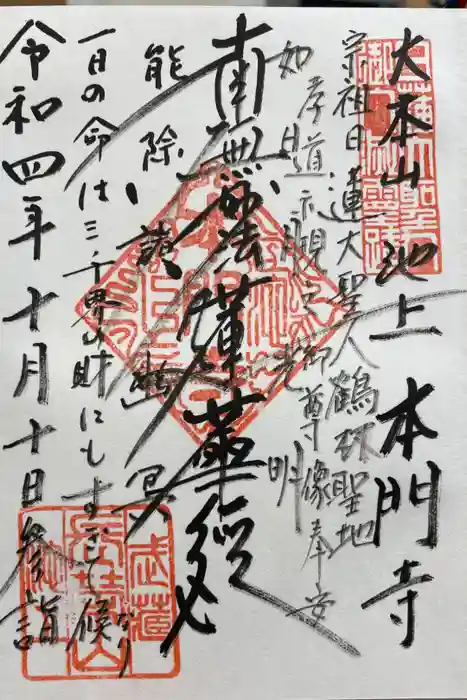 大本山 池上 本門寺
宗祖日蓮大聖人鶴林聖地
孝道示現之御尊像奉安
如日月光明
南無妙法蓮華経
能除諸幽冥
一日の命は三千界の財にもすぎて候なり
令和四年十月十日参詣